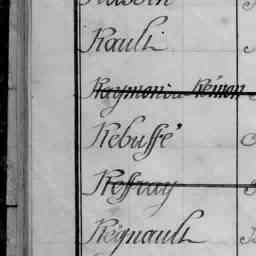 Rault
Raymond Rémon
Rebuffé
Roffray
Régnault